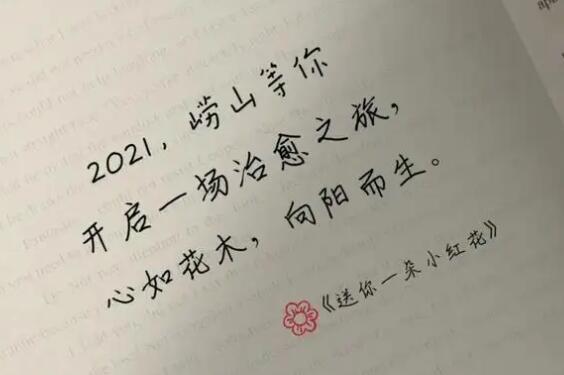 2021，崂山等你
开启一场治愈之旅，
心如花木，向阳而生。
《送你一朵小红花》